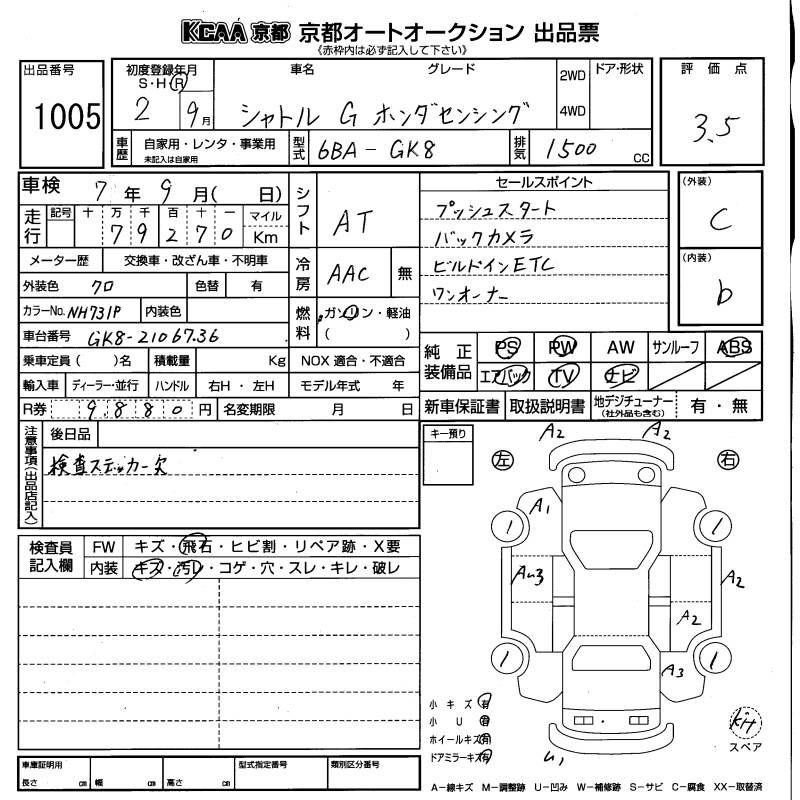 KCAA 京都 京都オートオークション 出品票
《赤枠内は必ず記入して下さい》
出品番号 1005
初度登録年月 S・H・R 2 9月
車名 グレード シャトル G ホンダセンシング
2WD 4WD
ドア・形状
評価点 3.5
車歴 自家用・レンタ・事業用 未記入は自家用
型式 6BA-GK8
排気 1500 CC
車検 7年 9月( 日)
走行 記号 十 万 千 百 十 一 マイル Km
79270
シフト AT
メーター歴 交換車・改ざん車・不明車
外装色 クロ 色替 有
冷房 AAC 無
カラーNo. NH731P 内装色
燃料 ガソリン・軽油 ( )
車台番号 GK8-2106736
乗車定員( )名 積載量 Kg NOX 適合・不適合
輸入車 ディーラー・並行 ハンドル 右H・左H モデル年式 年
R券 9,880円 名変期限 月 日
セールスポイント
プッシュスタート
バックカメラ
ビルドインETC
ワンオーナー
(外装) C
(内装) b
純正装備品 PS PW AW サンルーフ ABS
エアバック TV ナビ
新車保証書 取扱説明書 地デジチューナー (社外品も含む) 有・無
注意事項(出品店記入)
後日品
検査ステッカー欠
キー預り
左 右
A2 A2
A1
1 1
Au3 A2
A2
1 1
A3
U1
検査員記入欄
FW キズ・飛石・ヒビ割・リペア跡・X要
内装 キズ・汚レ・コゲ・穴・スレ・キレ・破レ
小キズ 有
小U 有
ホイールキズ 有
ドアミラーキズ 有
スペア
車庫証明用 長さ cm 幅 cm 高さ cm
型式指定番号 類別区分番号
A-線キズ M-調整跡 U-凹み W-補修跡 S-サビ C-腐食 XX-取替済